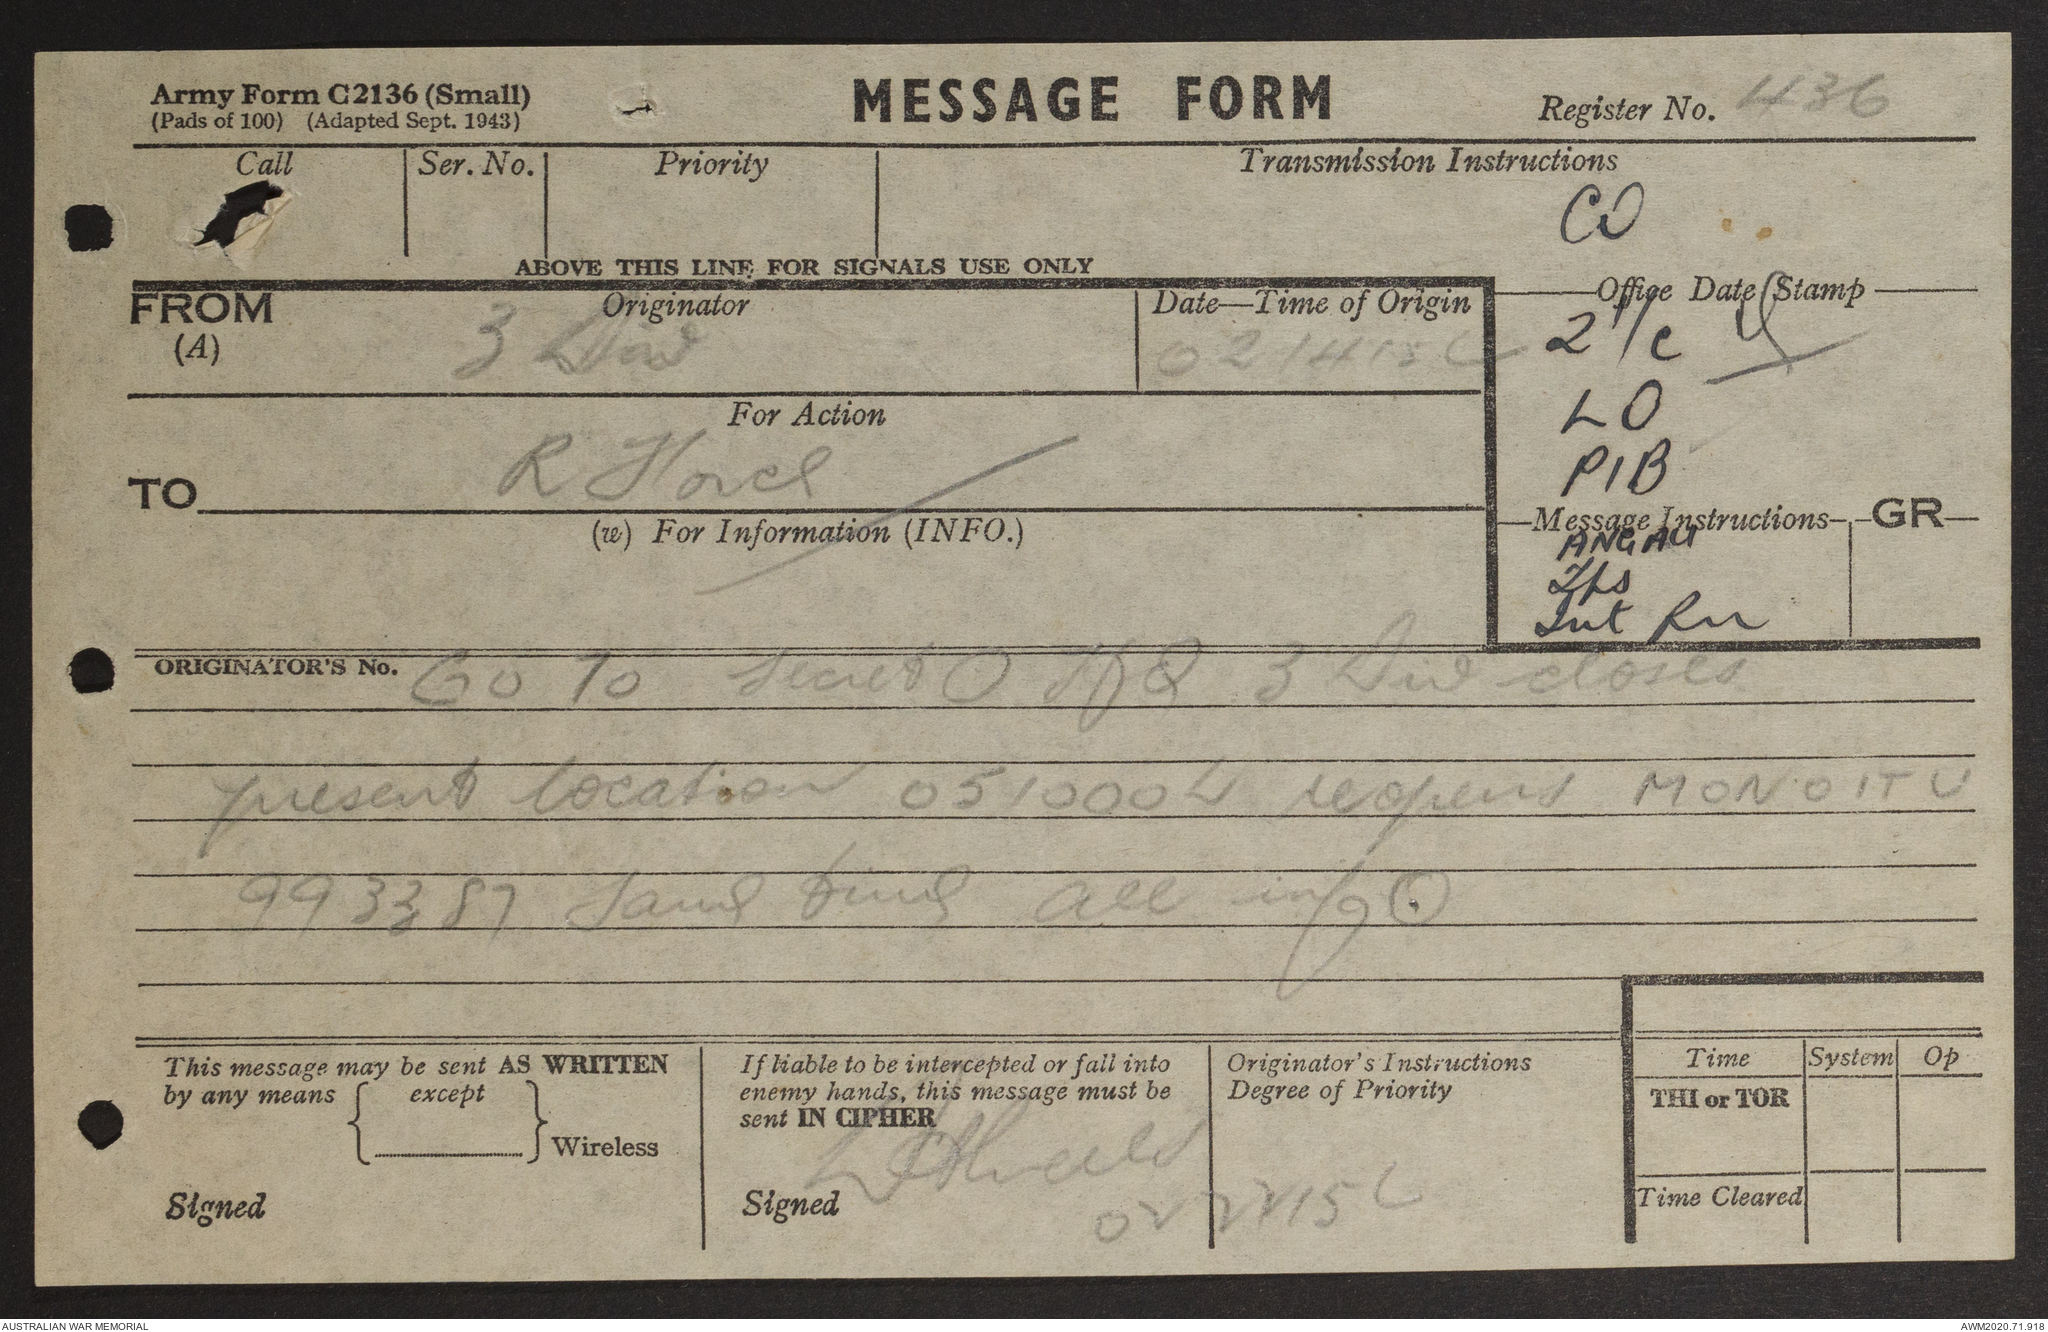 Army Form C2136 (Small)
(Pads of 100) (Adapted Sept. 1943)
MESSAGE FORM
Register No. 436
Call
Ser. No.
Priority
Transmission Instructions
CO
ABOVE THIS LINE FOR SIGNALS USE ONLY
FROM
(A)
Originator
3 Div
Date—Time of Origin
021415L
Office Date Stamp
2/c
LO
PIB
For Action
TO
R Force
(w) For Information (INFO.)
Message Instructions
GR
ANGAU
Int
ORIGINATOR'S No. GO 70 secret O HQ 3 Div closes
present location 051000L reopens MONOITU
993387 same time all info O
This message may be sent AS WRITTEN
by any means except
Wireless
Signed
If liable to be intercepted or fall into
enemy hands, this message must be
sent IN CIPHER
Signed
Originator's Instructions
Degree of Priority
Time
System
Op
THI or TOR
Time Cleared
AUSTRALIAN WAR MEMORIAL
AWM2020.71.918